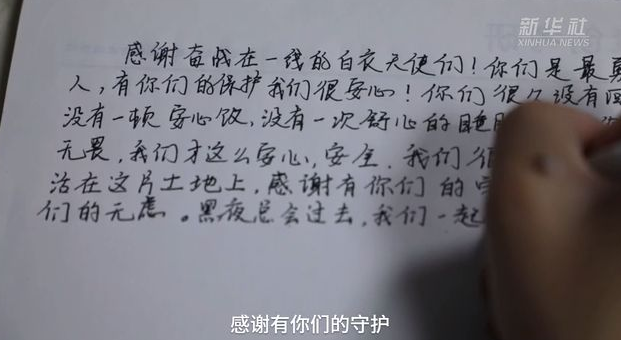 新华社
XINHUA NEWS
感谢奋战在一线的白衣天使们！你们是最
人，有你们的保护我们很安心！你们很久没有
没有一顿安心饭，没有一次舒心的睡
无畏，我们才这么安心，安全．我们很
活在这片土地上，感谢有你们的
们的无虑。黑夜总会过去，我们一起
感谢有你们的守护